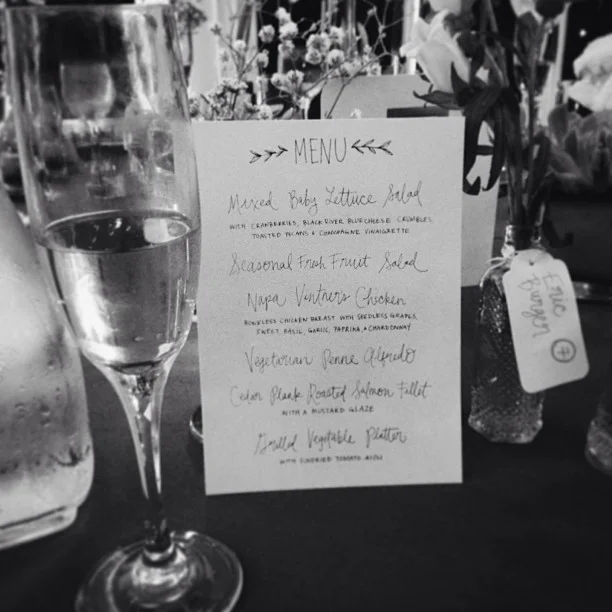 MENU
Mixed Baby Lettuce Salad
WITH CRANBERRIES, BLACK RIVER BLUE CHEESE CRUMBLES,
TOASTED PECANS & CHAMPAGNE VINAIGRETTE
Seasonal Fresh Fruit Salad
Napa Vintners Chicken
BONELESS CHICKEN BREAST WITH SEEDLESS GRAPES,
SWEET BASIL, GARLIC, PAPRIKA, & CHARDONNAY
Vegetarian Penne Alfredo
Cedar Plank Roasted Salmon Fillet
WITH A MUSTARD GLAZE
Grilled Vegetable Platter
WITH SUNDRIED TOMATO AIOLI
Eric
7